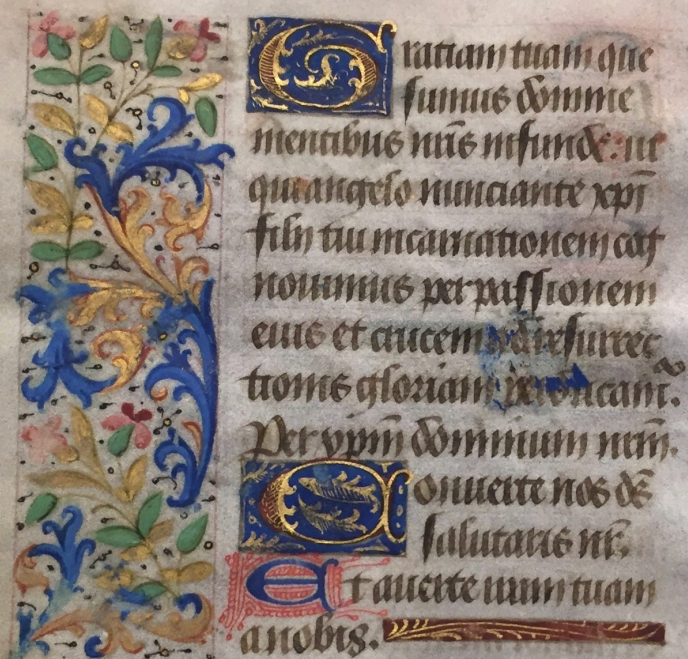 Gratiam tuam que
sumus domine
mentibus nr̄is infunde: ut
qui angelo nunciante xp̄i
filii tui incarnationem cog
nouimus per passionem
eius et crucem ad resurrec
tionis gloriam
Per xp̄m dominum nr̄m.
Conuerte nos ds̄
salutaris nr̄.
Et auerte iram tuam
a nobis.